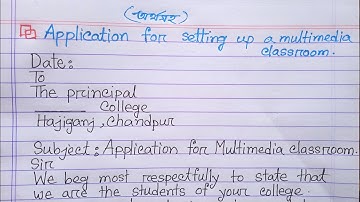 (অর্থসহ)
Application for setting up a multimedia
classroom.
Date:
To
The principal
______ College
Hajiganj, Chandpur
Subject: Application for Multimedia classroom.
Sir
We beg most respectfully to state that
we are the students of your college.